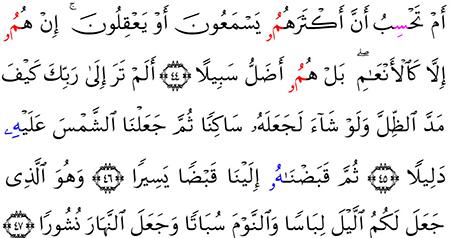 أَمْ تَحْسِبُ أَنَّ أَكْثَرَهُمُۥ يَسْمَعُونَ أَوْ يَعْقِلُونَ ۚ إِنْ هُمُۥ
إِلَّا كَٱلْأَنْعَٰمِ ۖ بَلْ هُمُۥ أَضَلُّ سَبِيلًا ﴿٤٤﴾ أَلَمْ تَرَ إِلَىٰ رَبِّكَ كَيْفَ
مَدَّ ٱلظِّلَّ وَلَوْ شَآءَ لَجَعَلَهُۥ سَاكِنًا ثُمَّ جَعَلْنَا ٱلشَّمْسَ عَلَيْهِۦ
دَلِيلًا ﴿٤٥﴾ ثُمَّ قَبَضْنَٰهُۥ إِلَيْنَا قَبْضًا يَسِيرًا ﴿٤٦﴾ وَهُوَ ٱلَّذِى
جَعَلَ لَكُمُ ٱلَّيْلَ لِبَاسًا وَٱلنَّوْمَ سُبَاتًا وَجَعَلَ ٱلنَّهَارَ نُشُورًا ﴿٤٧﴾